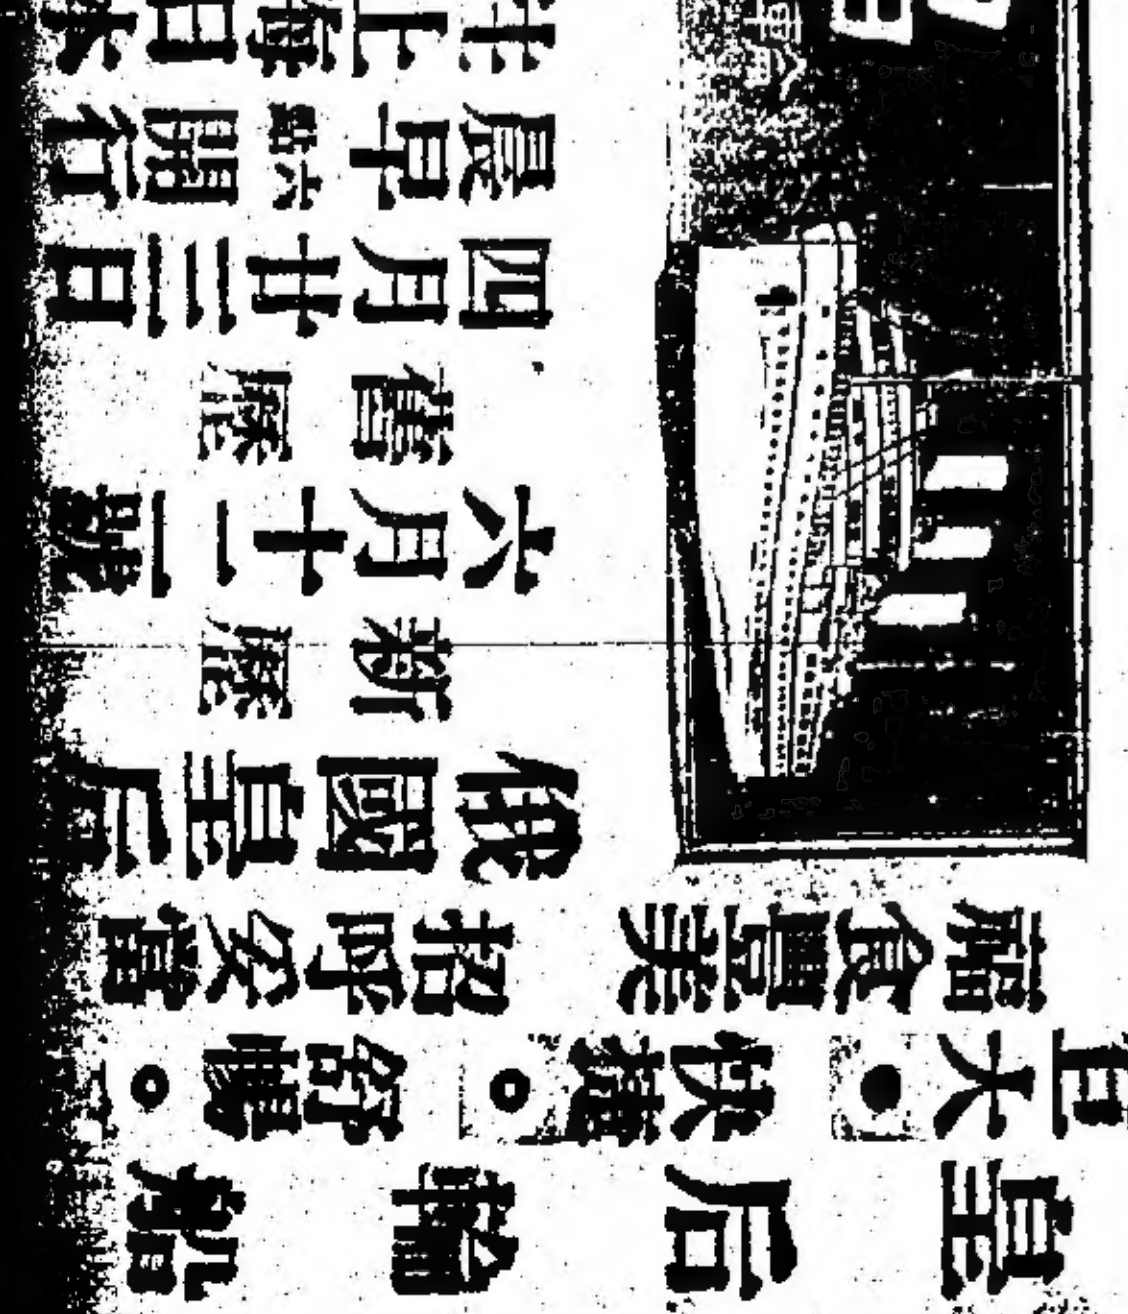 皇后輪船
大●快捷○舒暢○
食豐美 招呼妥當
俄國皇后
新歷
六月十二號
舊歷
四月廿三日
晨早六點開行
上海日本